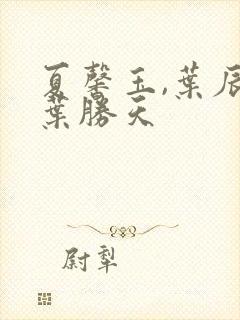 夏馨玉,葉辰
葉勝天
尉犁